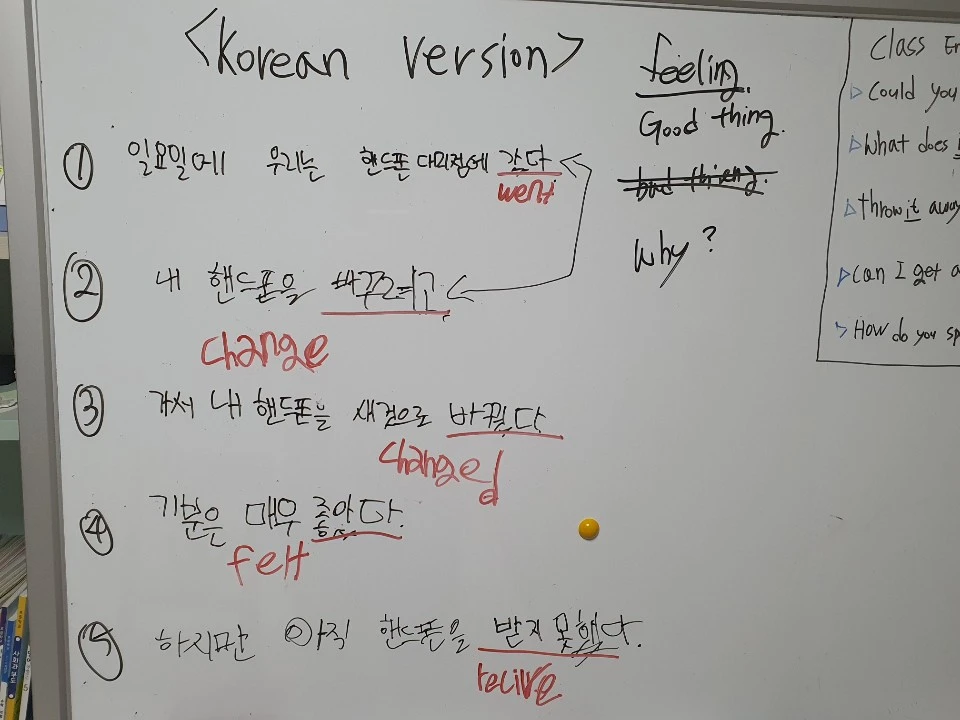 <Korean version>
① 일요일에 우리는 핸드폰 대리점에 갔다
went
② 내 핸드폰을 바꾸려고
change
③ 가서 내 핸드폰을 새것으로 바꿨다
changed
④ 기분은 매우 좋았다.
felt
⑤ 하지만 아직 핸드폰을 받지 못했다.
recive
feeling.
Good thing.
bad thieng.
Why?
Class En
Could you
What does i
throw it away
Can I get a
How do you sp